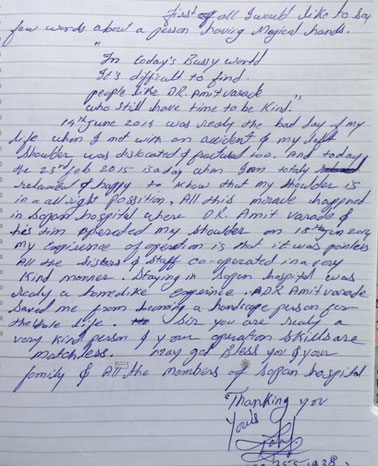 First of all I would like to say
few words about a person having Magical hands.
"In today's Bussy world
It's difficult to find
people like DR. Amit varade
who still have time to be kind."
14th June 2014 was realy the bad day of my
life when I met with an accident & my left
shoulder was dislocated & fractured too. And today
the 23rd Feb 2015 is a day when I am totaly
relaxed & happy to know that my shoulder is
in a all right possition. All this mirack happned
in Sopan hospital where DR. Amit varade &
his tim operated my shoulder on 15th
my expirence of operation is that it was painless
All the sisters & staff co-operated in a very
kind manner. Staying in Sopan hospital was
realy a homelike experince. DR Amit varade
saved me from becoming a handicape person for
the whole life. Sir you are realy a
very kind person & your opration skills are
matchless. may god Bless you & your
family & All the members of Sopan hospital
Thanking you
Yours